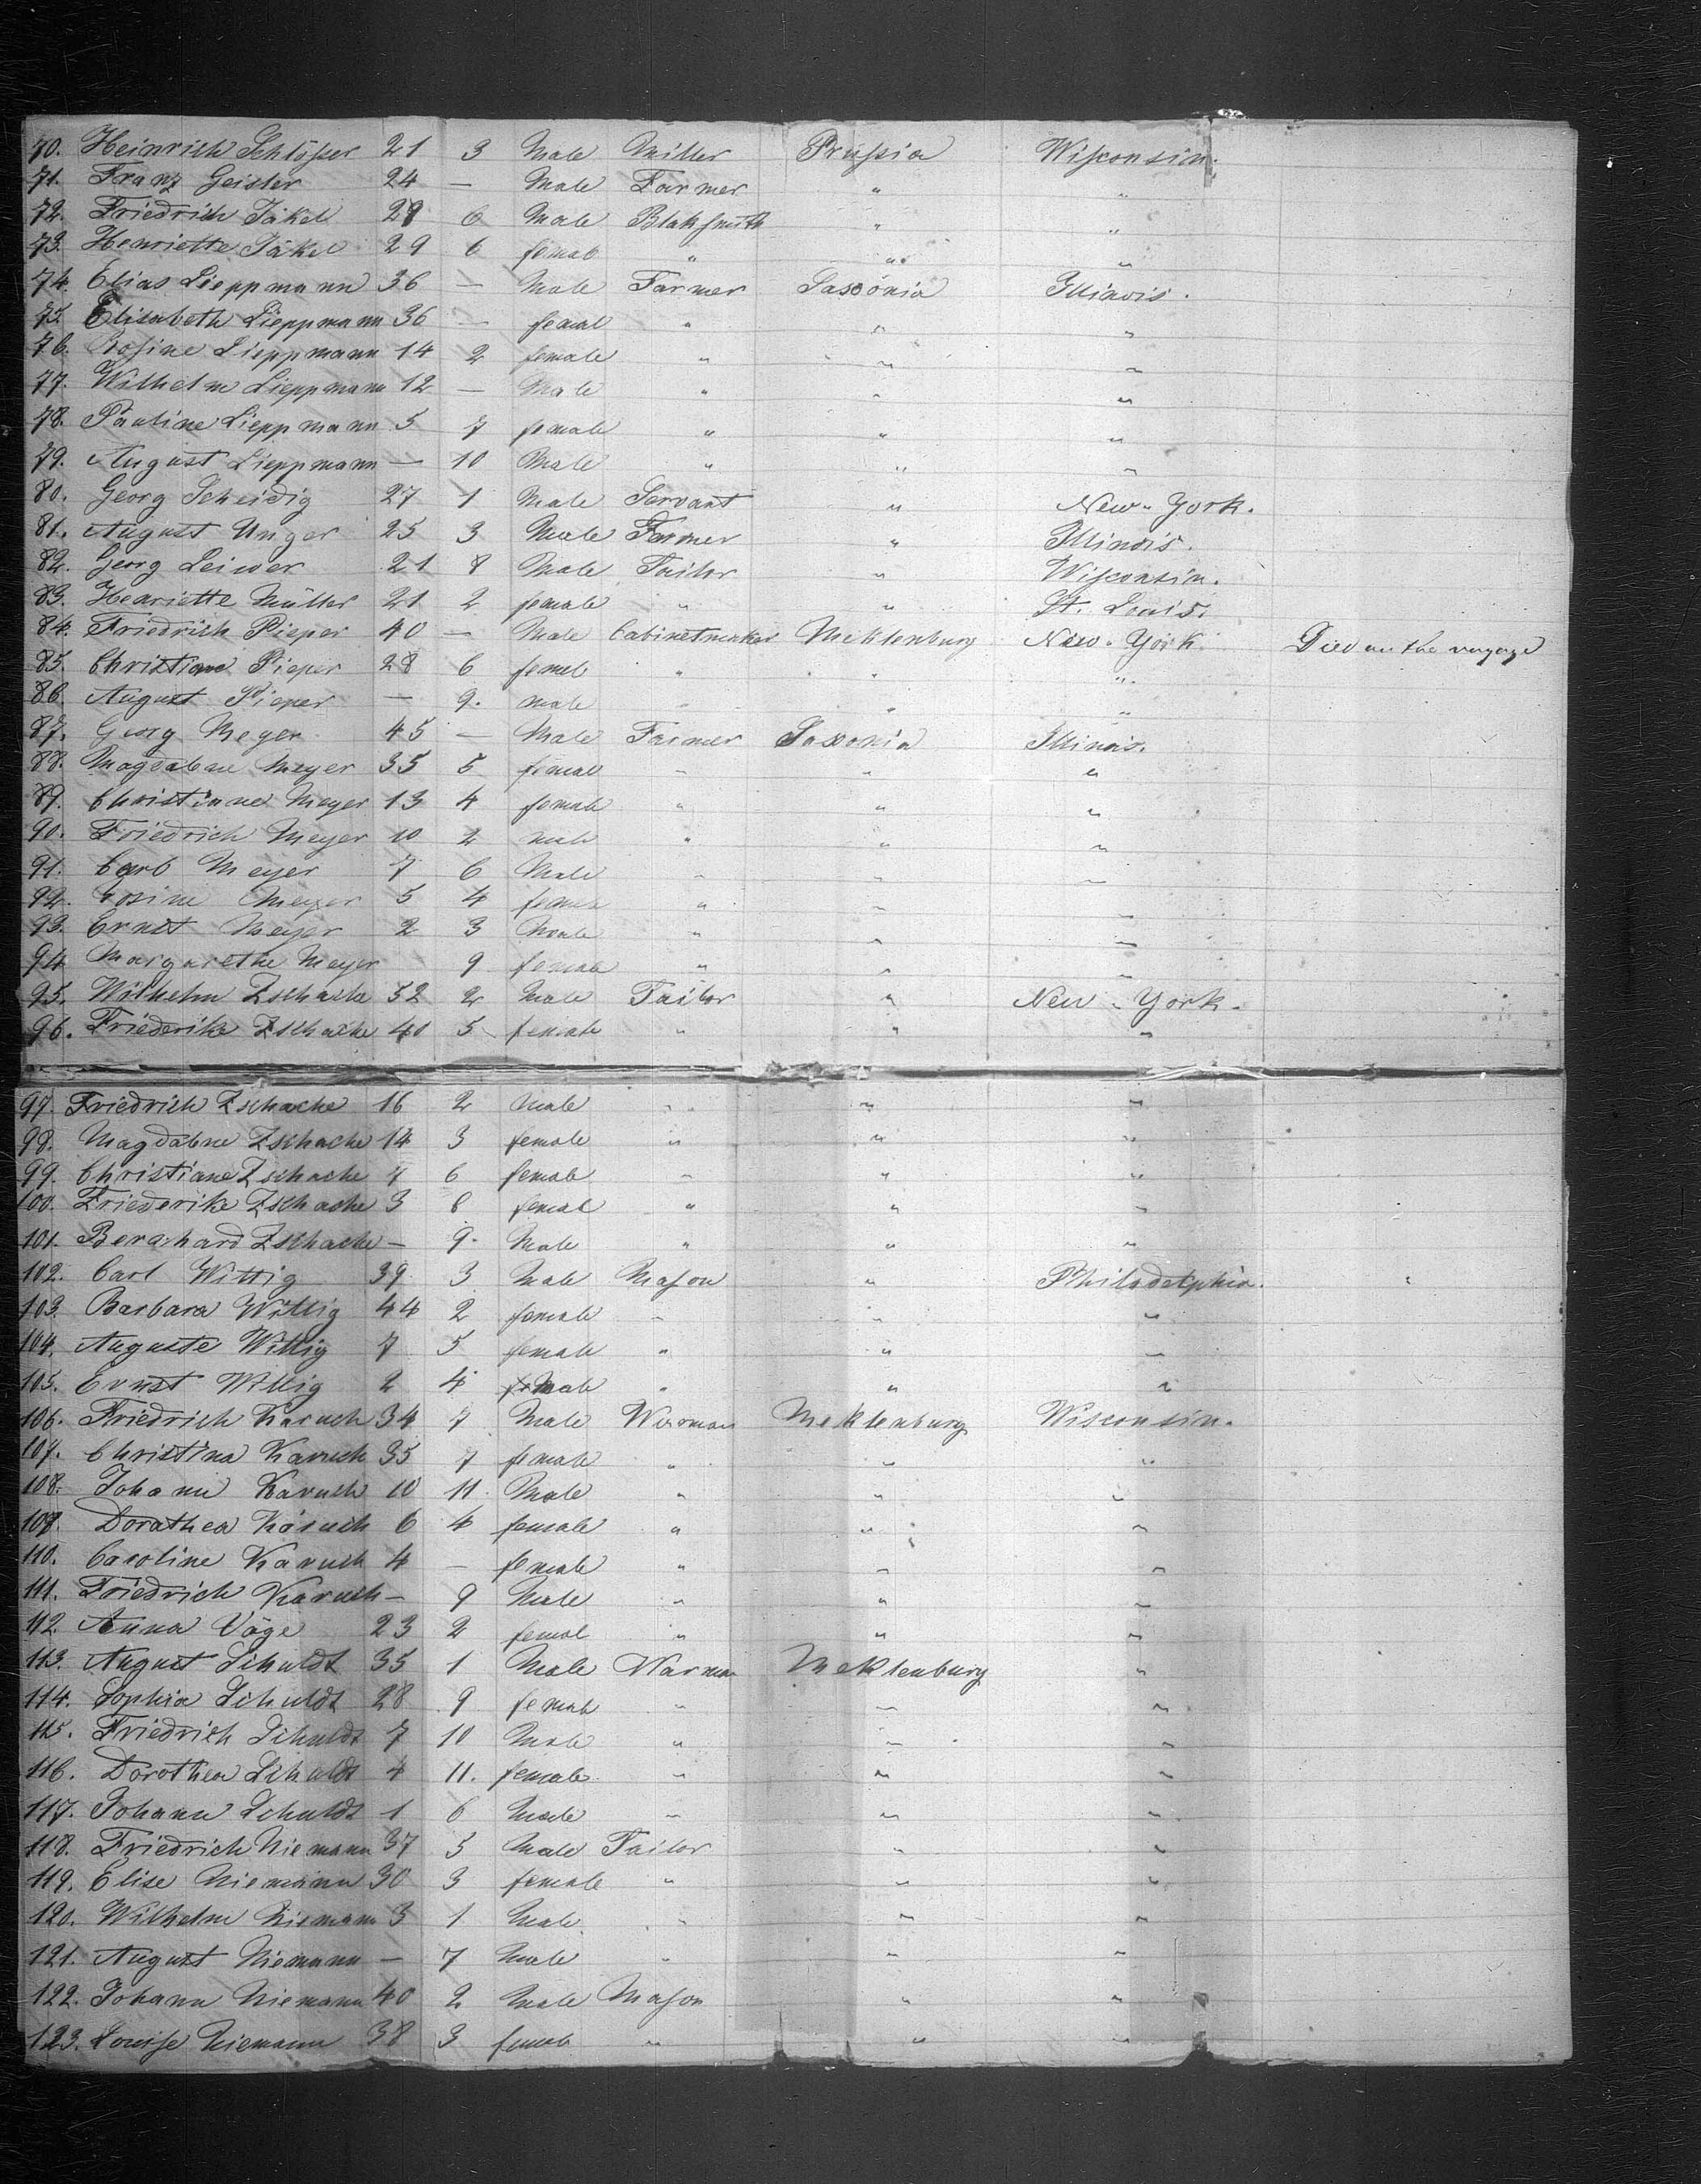 70. Heinrich Schlößer 21 3 Male Miller Prussia Wisconsin.
71. Franz Geisler 24 — Male Farmer " "
72. Friedrich Jäkel 29 6 Male Blaksmith " "
73. Henriette Jäkel 29 6 femal " " "
74. Elias Lieppmann 36 — Male Farmer Saxonia Illinois.
75. Elisabeth Lieppmann 36 — femal " " "
76. Rosine Lieppmann 14 2 female " " "
77. Wilhelm Lieppmann 12 — Male " " "
78. Pauline Lieppmann 5 7 female " " "
79. August Lieppmann — 10 Male " " "
80. Georg Scheidig 27 1 Male Servant " New-York.
81. August Unger 25 3 Male Farmer " Illinois.
82. Georg Leiwer 21 8 Male Tailor " Wisconsin.
83. Henriette Müller 21 2 female " " St. Louis.
84. Friedrich Pieper 40 — Male Cabinetmaker Meklenburg New-York Died on the voyage
85. Christiane Pieper 28 6 femel " " "
86. August Pieper — 9. male " " "
87. Georg Meyer 45 — Male Farmer Saxonia Illinois.
88. Magdalene Meyer 35 5 femal " " "
89. Christiane Meyer 13 4 female " " "
90. Friedrich Meyer 10 2 male " " "
91. Carl Meyer 7 6 Male " " "
92. Rosine Meyer 5 4 female " " "
93. Ernst Meyer 2 3 Male " " "
94 Margarethe Meyer 9 female " " "
95. Wilhelm Zschache 52 2 Male Tailor " New-York.
96. Friederike Zschache 40 5 female " " "
97. Friedrich Zschache 16 2 Male " " "
98. Magdalene Zschache 14 3 female " " "
99. Christiane Zschache 7 6 female " " "
100. Friederike Zschache 3 8 female " " "
101. Bernhard Zschache — 9. Male " " "
102. Carl Wittig 39 3 Male Mason " Philadelphia.
103. Barbara Wittig 44 2 female " " "
104. Auguste Wittig 7 5 female " " "
105. Ernst Wittig 2 4 Male " " "
106. Friedrich Karuch 34 7 Male Meklenburg Wisconsin.
107. Christina Karuch 35 7 female " " "
108. Johann Karuch 10 11. Male " " "
109. Dorathea Karuch 6 4 female " " "
110. Caroline Karuch 4 — female " " "
111. Friedrich Karuch — 9 Male " " "
112. Anna Väge 23 2 femal " " "
113. August Schuldt 35 1 Male Meklenburg "
114. Sophia Schuldt 28 9 female " " "
115. Friedrich Schuldt 7 10 Male " " "
116. Dorothea Schuldt 4 11. female " " "
117. Johann Schuldt 1 6 Male " " "
118. Friedrich Niemann 37 5 Male Tailor " "
119. Elise Niemann 30 3 female " " "
120. Wilhelm Niemann 3 1 Male " " "
121. August Niemann — 7 Male " " "
122. Johann Niemann 40 2 Male Mason " "
123. Louise Niemann 38 3 female " " "